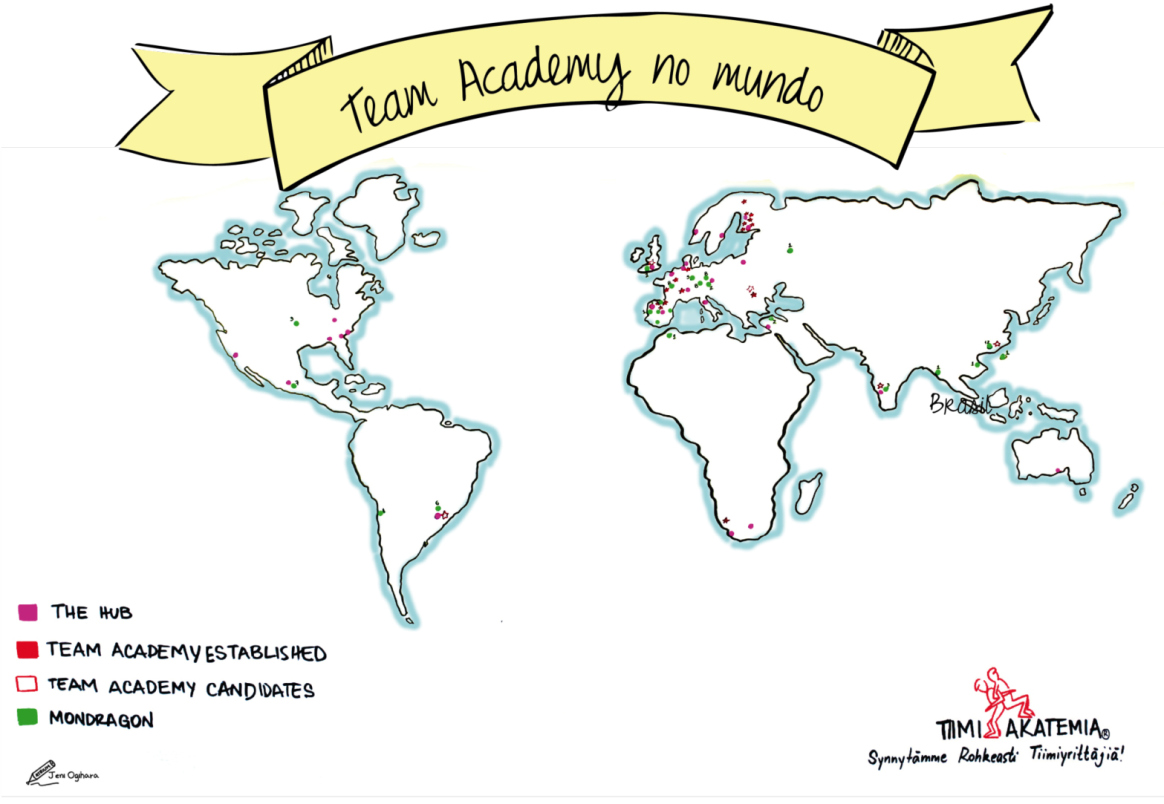 Team Academy no mundo
Brasil
THE HUB
TEAM ACADEMY ESTABLISHED
TEAM ACADEMY CANDIDATES
MONDRAGON
TIIMIAKATEMIA®
Synnytämme Rohkeasti Tiimiyrittäjiä!
Jeni Oghara